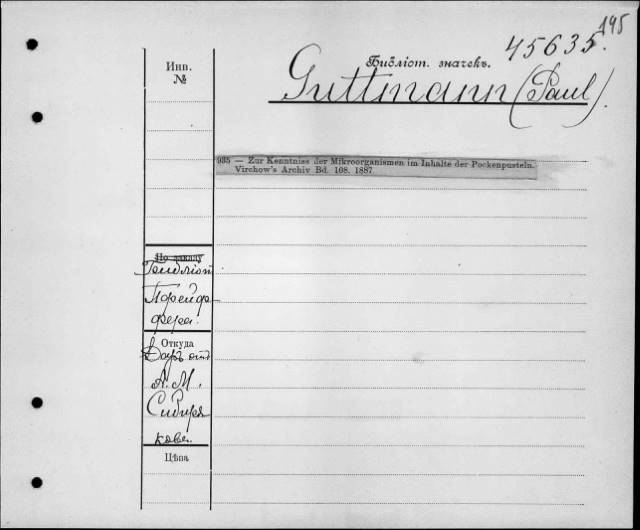 195
45635.
Инв.
№
Библіот. значекъ.
Guttmann (Paul).
935 — Zur Kenntniss der Mikroorganismen im Inhalte der Pockenpusteln.
Virchow's Archiv Bd. 108. 1887.
По заказу
Пфейф-
фера.
Откуда
Даръ отъ
А. М.
Сибиря-
кова.
Цѣна